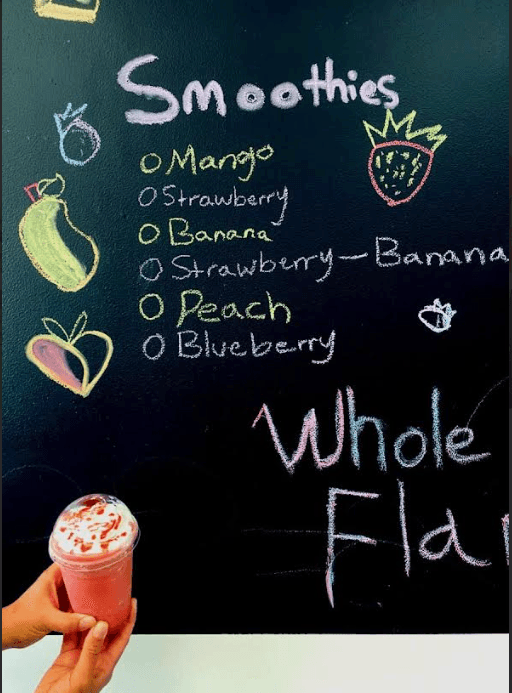 Smoothies
O Mango
O Strawberry
O Banana
O Strawberry-Banana
O Peach
O Blueberry
Whole